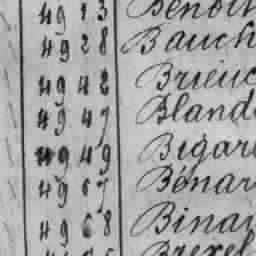 4913 Benoit
4928 Bauch
4942 Brieuc
4947 Bland
4949 Bigar
4967 Bénar
4968 Binai
Brexel